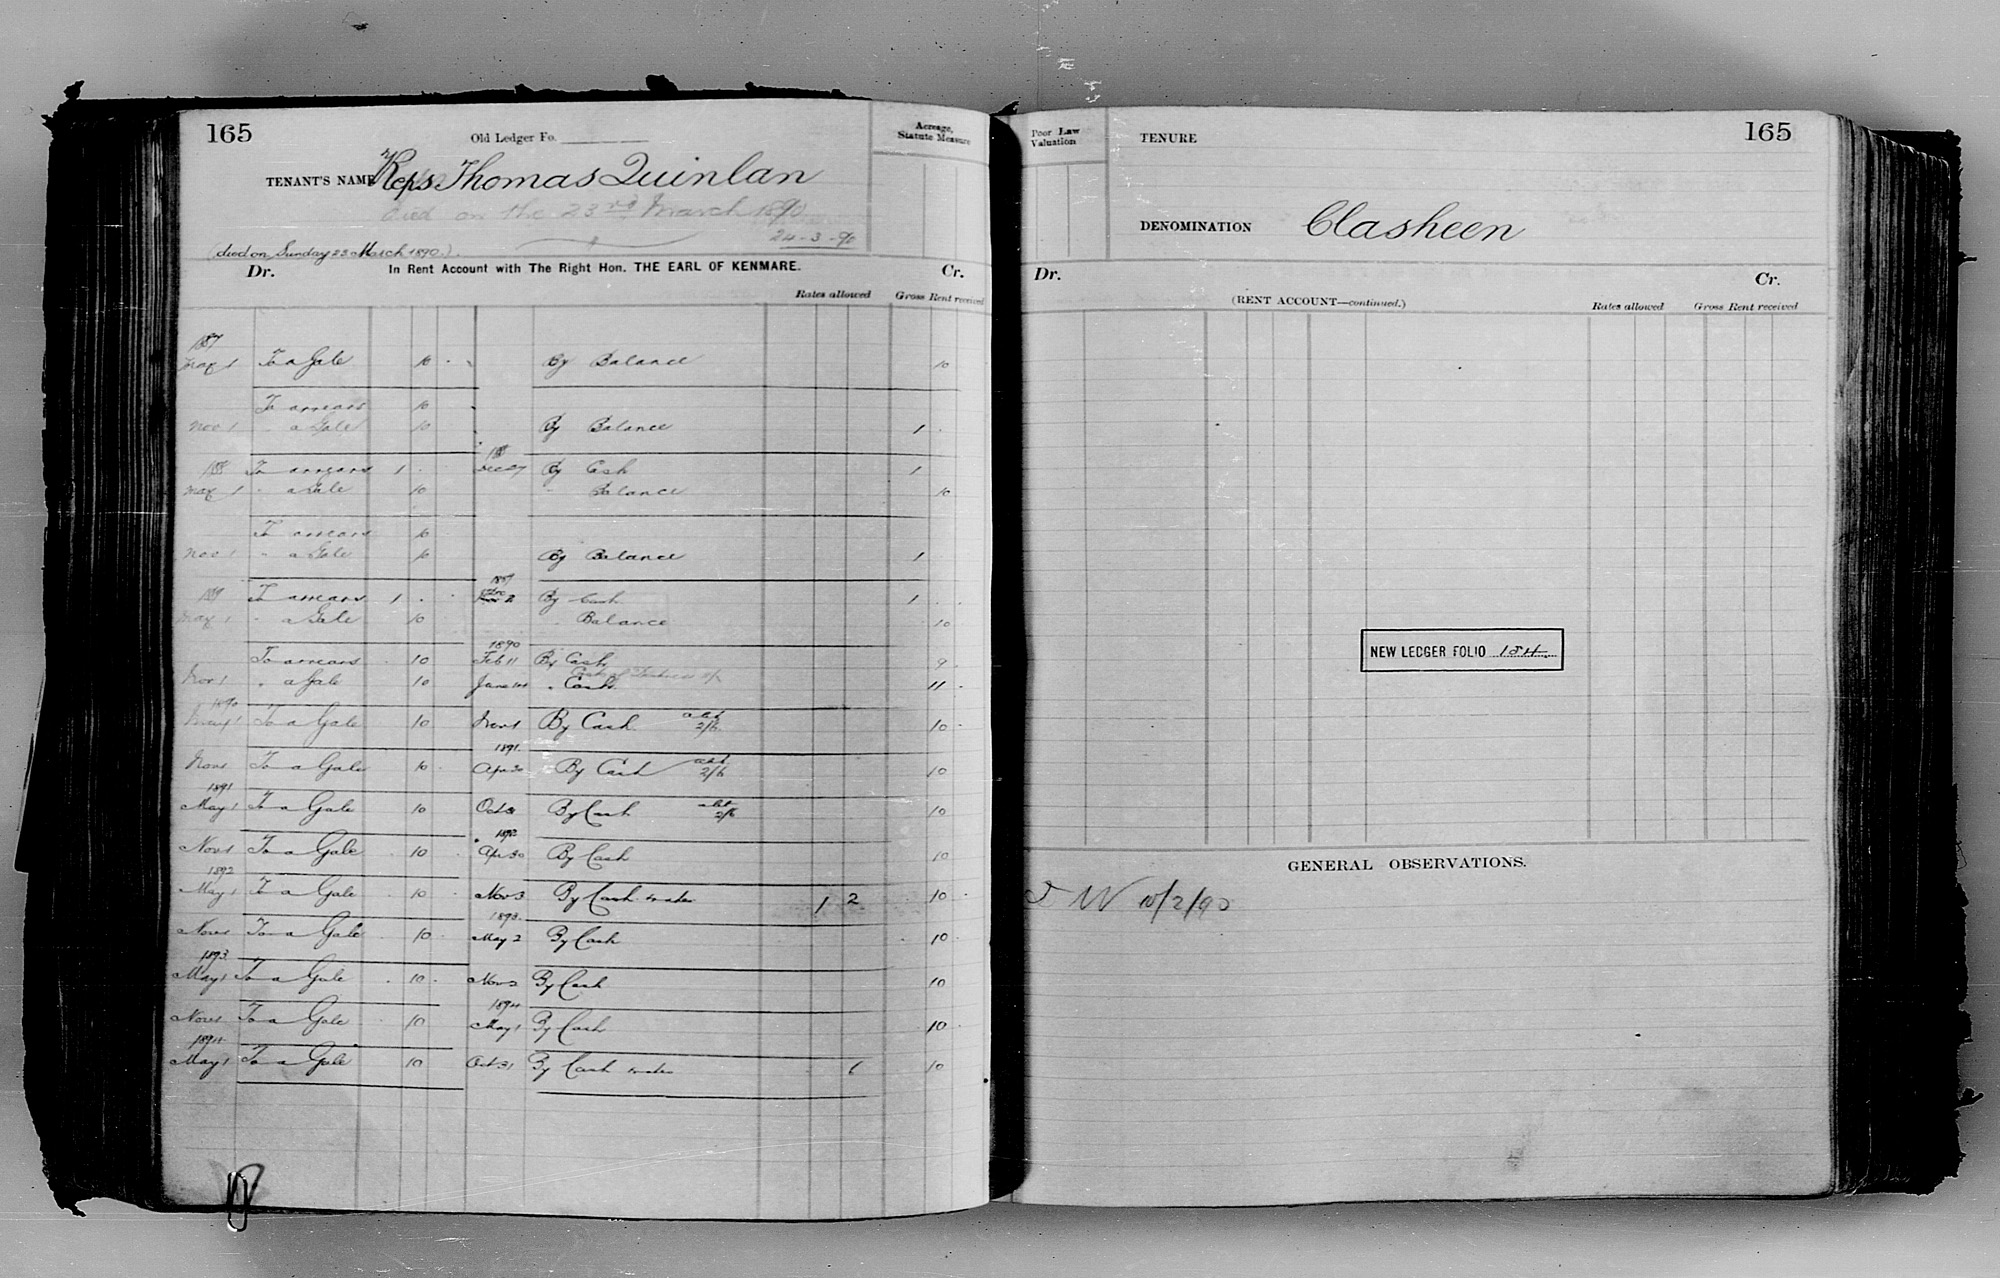 165
Old Ledger Fo.
Acreage, Statute Measure
TENANT'S NAME Reps Thomas Quinlan
died on the 23rd March 1890
24-3-90
(died on Sunday 23 March 1890.)
Dr. In Rent Account with The Right Hon. THE EARL OF KENMARE. Cr.
Rates allowed Gross Rent received
1887
May 1 To a Gale 10 . By Balance 10
To arrears 10
Nov 1 " a Gale 10 By Balance 1 .
1888 1888
To arrears 1 . Dec 27 By Cash 1
May 1 " a Gale 10 " Balance 10
To arrears 10
Nov 1 " a Gale 10 By Balance 1
1889 1889
To arrears 1 . . 2 By Cash 1 . .
May 1 " a Gale 10 " Balance 10
1890
To arrears . 10 Feb 11 By Cash 9
Nov 1 " a Gale 10 June " Cash 11 .
1890
May 1 To a Gale 10 Nov 1 By Cash abt 2/6 10 .
1891
Nov 1 To a Gale 10 Apr 30 By Cash abt 2/6 10
1891
May 1 To a Gale 10 Oct 31 By Cash abt 2/6 10
1892
Nov 1 To a Gale . 10 . Apr 30 By Cash 10
1892
May 1 To a Gale . 10 . Nov 3 By Cash & rates 1 2 10 .
1893
Nov 1 To a Gale . 10 . May 2 By Cash . 10 .
1893
May 1 To a Gale . 10 . Nov 2 By Cash 10
1894
Nov 1 To a Gale 10 May 1 By Cash 10
1894
May 1 To a Gale 10 Oct 31 By Cash & rates 6 10
Poor Law Valuation
TENURE
165
DENOMINATION Clasheen
Dr. Cr.
(RENT ACCOUNT—continued.) Rates allowed Gross Rent received
NEW LEDGER FOLIO 184
GENERAL OBSERVATIONS.
J W 10/2/90